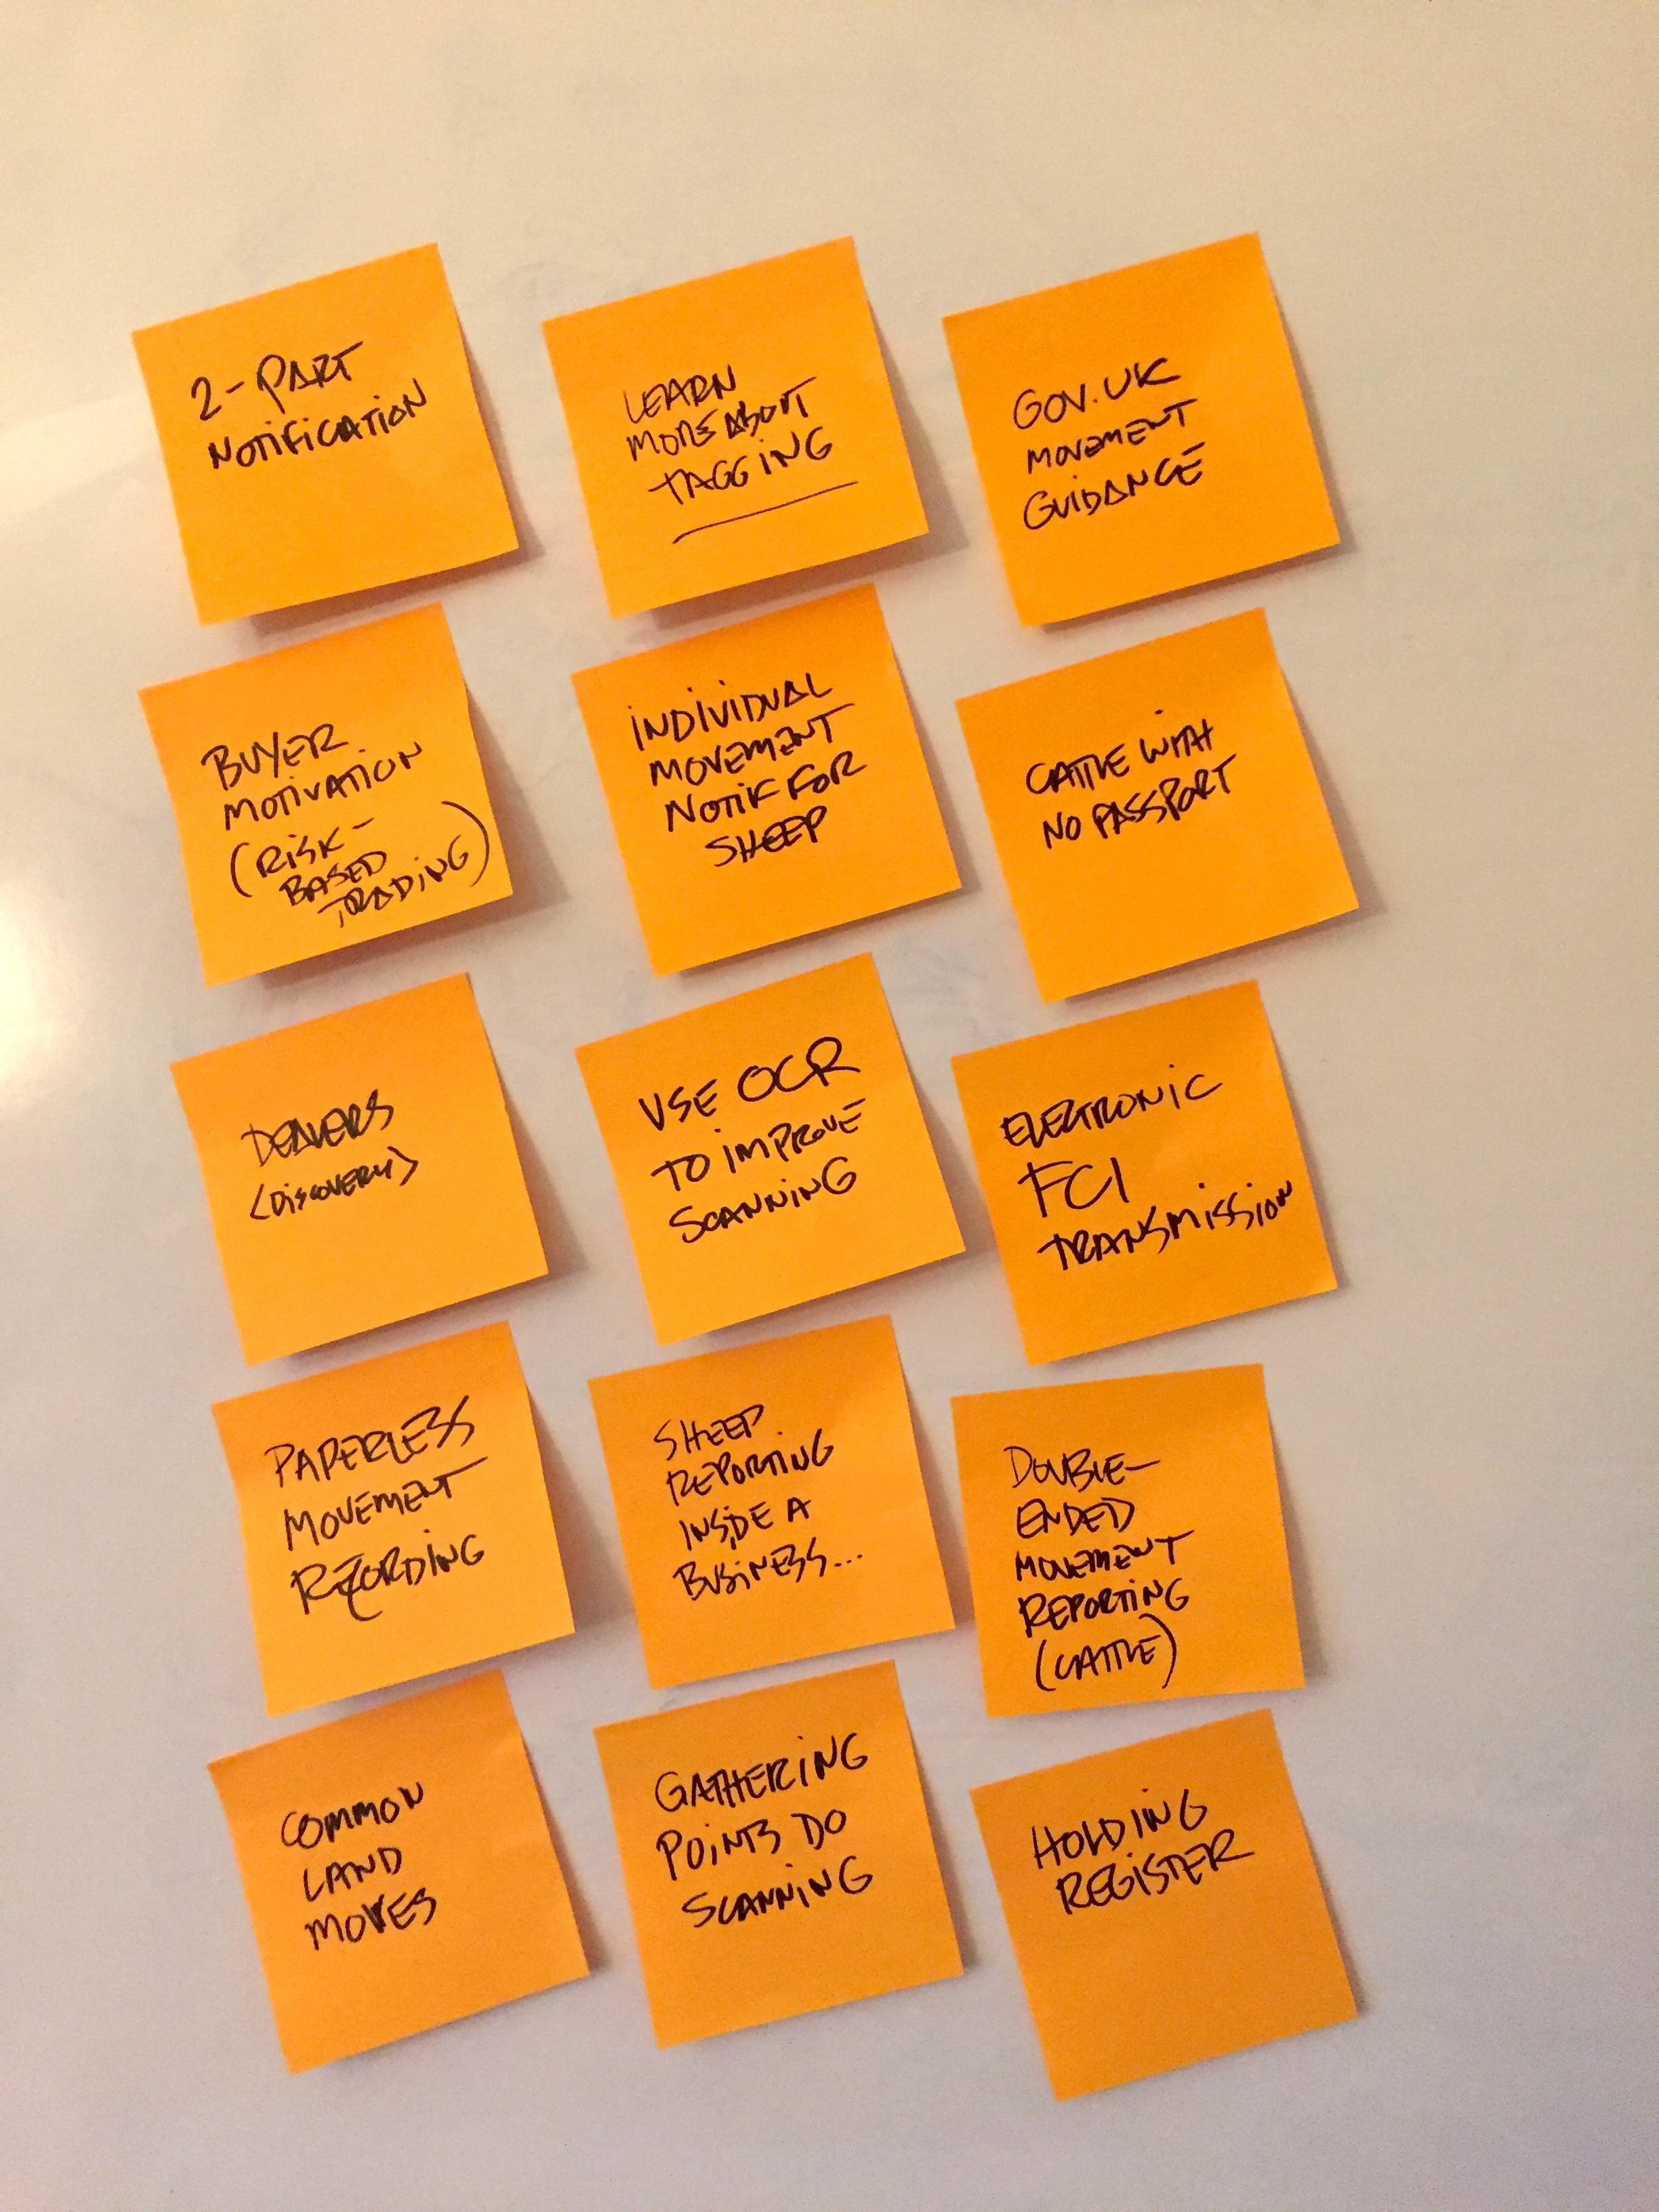 2-PART
NOTIFICATION
LEARN
MORE ABOUT
TAGGING
GOV.UK
MOVEMENT
GUIDANCE
BUYER
MOTIVATION
(RISK-
BASED
TRADING)
INDIVIDUAL
MOVEMENT
NOTIF FOR
SHEEP
CATTLE WITH
NO PASSPORT
DEALERS
<DISCOVERY>
USE OCR
TO IMPROVE
SCANNING
ELECTRONIC
FCI
TRANSMISSION
PAPERLESS
MOVEMENT
RECORDING
SHEEP
REPORTING
INSIDE A
BUSINESS...
DOUBLE-
ENDED
MOVEMENT
REPORTING
(CATTLE)
COMMON
LAND
MOVES
GATHERING
POINTS DO
SCANNING
HOLDING
REGISTER